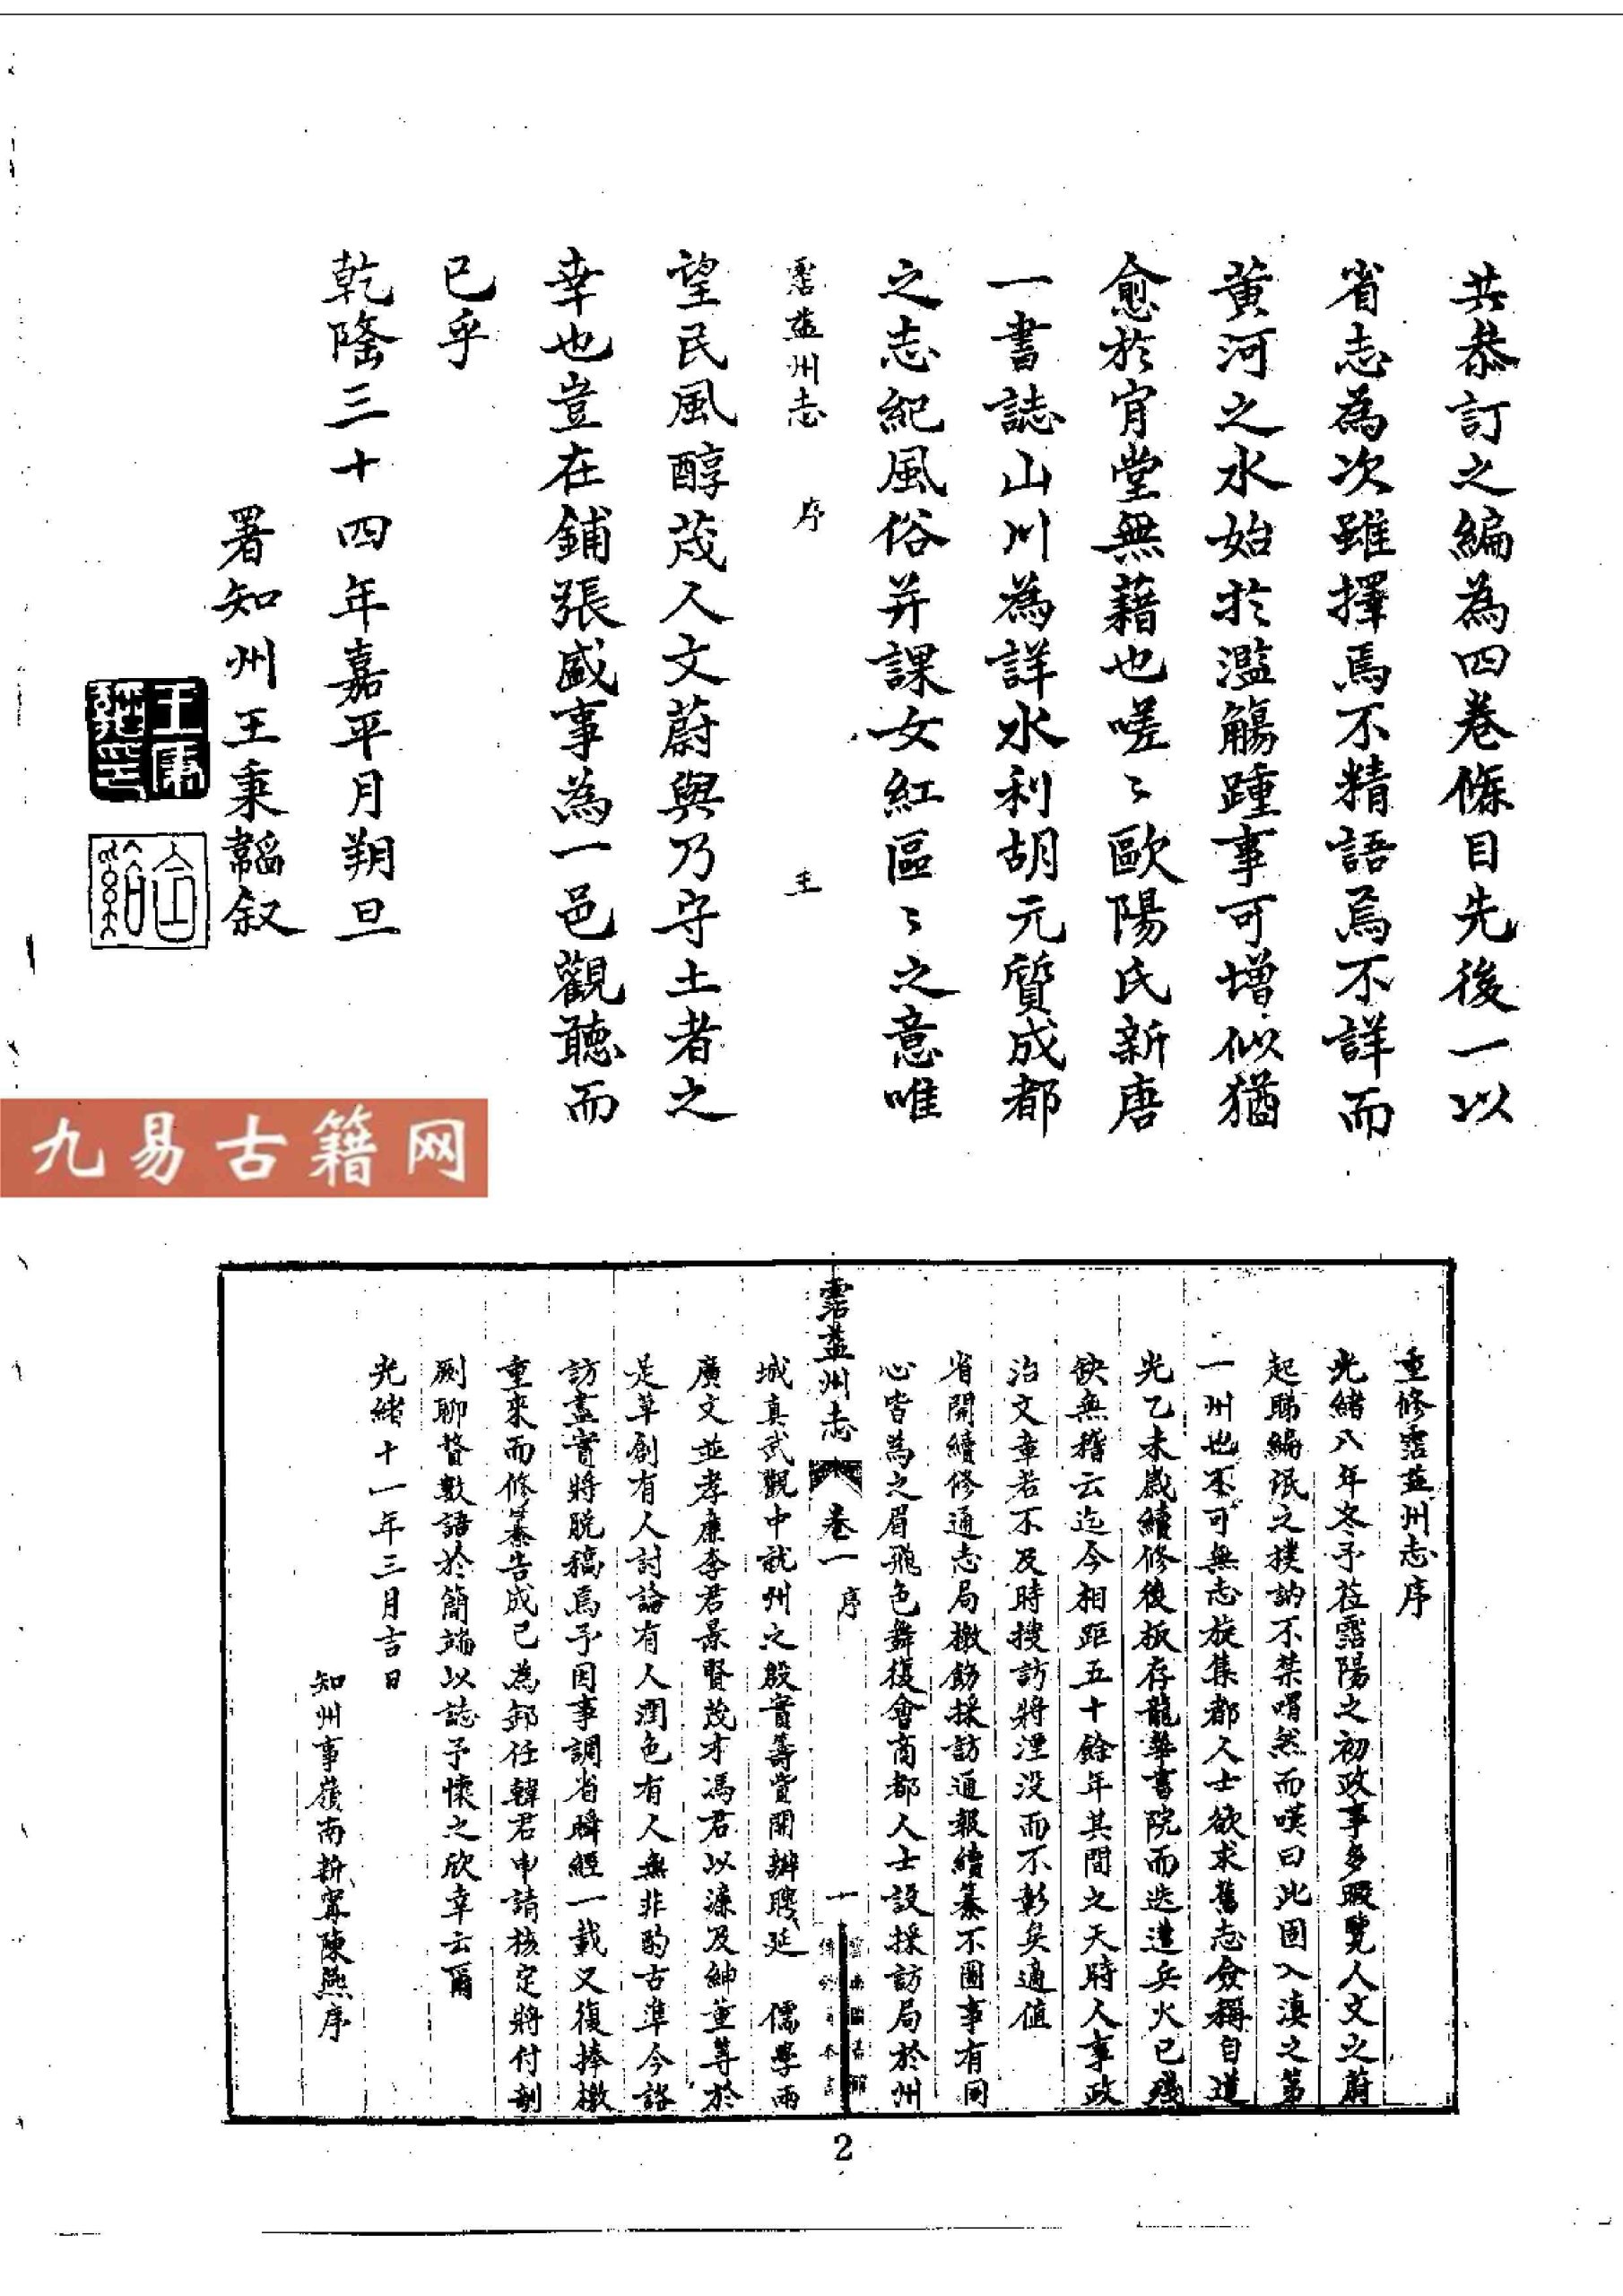 共恭訂之編為四卷條目先後一以
省志為次雖擇焉不精語焉不詳而
黃河之水始於濫觴踵事可增似猶
愈於肯堂無藉也嗟〻歐陽氏新唐
一書誌山川為詳水利胡元質成都
之志紀風俗并課女紅區〻之意唯
霑益州志 序
望民風醇茂人文蔚興乃守土者之
幸也豈在鋪張盛事為一邑觀聽而
已乎
乾隆三十四年嘉平月朔旦
署知州王秉韜叙
九易古籍网
重修霑益州志序
光緒八年冬予莅霑陽之初政事多暇覽人文之蔚
起睇編氓之樸訥不禁喟然而嘆曰此固入滇之第
一州也不可無志旋集都人士欲求舊志僉稱自道
光乙未歲續修後板存龍華書院而迭遭兵火已殘
缺無稽云迄今相距五十餘年其間之天時人事政
治文章若不及時搜訪將湮没而不彰矣適值
省開續修通志局檄飭採訪通報續纂不圖事有同
心皆為之眉飛色舞復會商都人士設採訪局於州
霑益州志 卷一 序 一
城真武觀中就州之殷實籌貲開辦聘延 儒學兩
廣文並孝廉李君景賢茂才馮君以濂及紳董等於
是草創有人討論有人潤色有人無非酌古準今諮
訪盡實將脫稿焉予因事調省瞬經一載又復捧檄
重來而修纂告成已為卸任韓君申請核定將付剞
劂聊贅數語於簡端以誌予懷之欣幸云爾
光緒十一年三月吉日
知州事嶺南新寧陳燕序
2